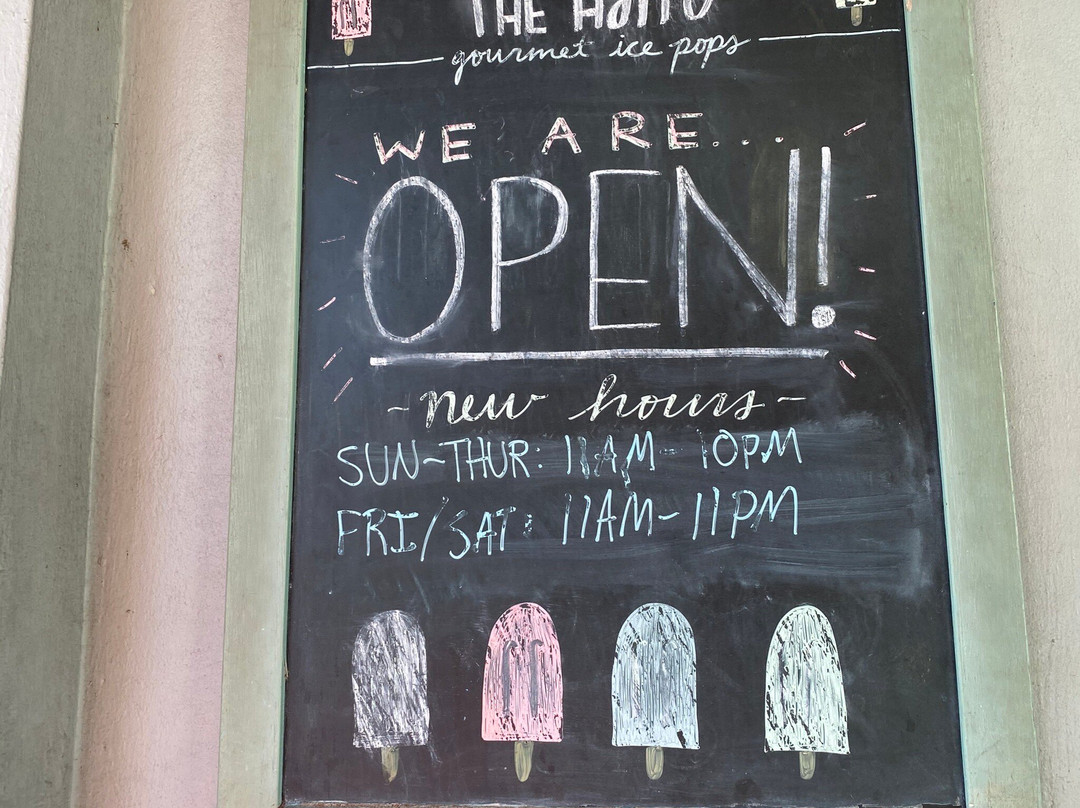 THE
gourmet ice pops
WE ARE...
OPEN!
~new hours~
SUN~THUR: 11AM- 10PM
FRI/SAT: 11AM-11PM